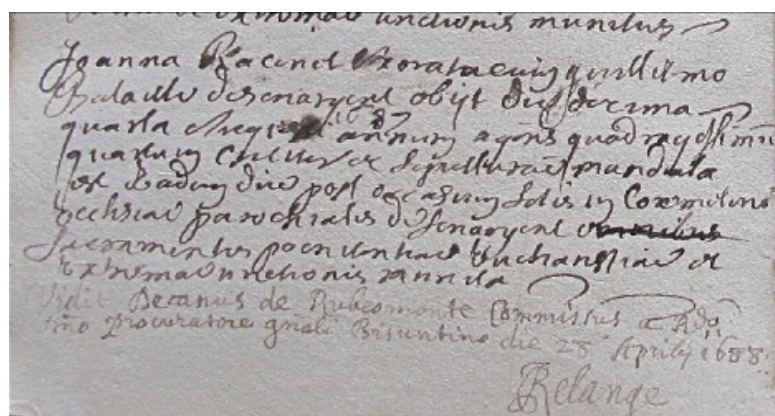 extremae unctionis munitus
Joanna Racinet Uxorata cuiq guillelmo
Bataille desenargent obijt die decima
quarta Augusti 168 annum agens quadragesimum
quartum Cuius Cadaver sepulturae mandata
est Eadem die post occasum solis in Coemeterio
Ecclesiae parochialis desenargent omnibus
Sacramentis poenitentiae Eucharistiae et
Extremae unctionis munita
Vidit Decanus de Rubeomonte Commissus a Rdo
Dno procuratore gnali Bisuntino die 28 Aprilis 1688
Relange